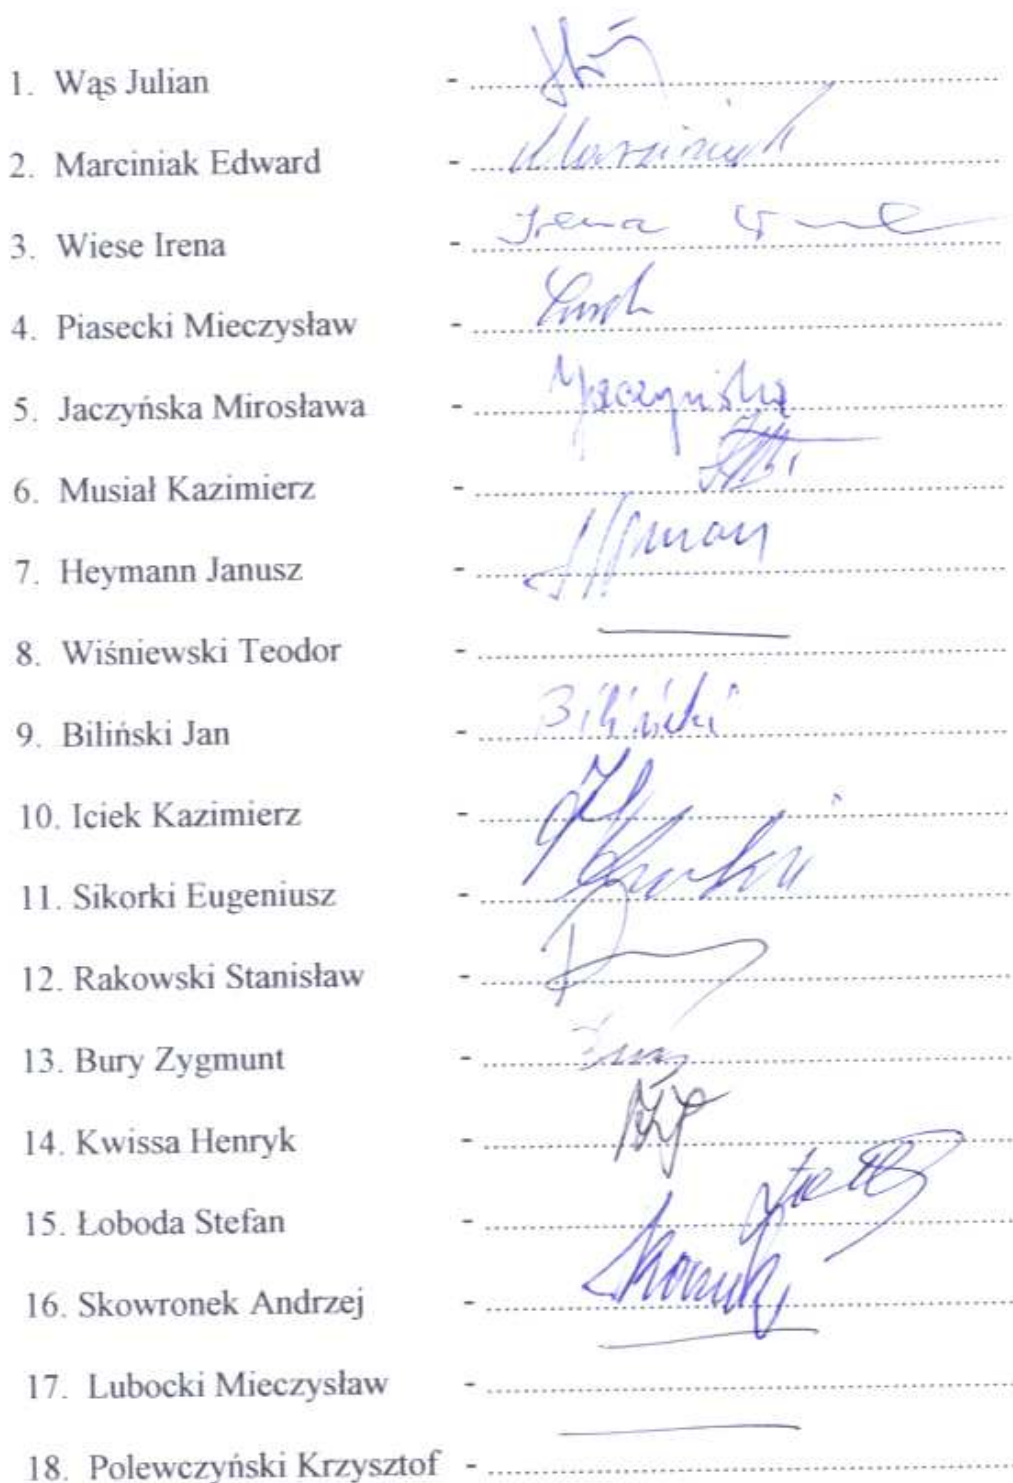 1. Wąs Julian - ........
2. Marciniak Edward - ........ Marciniak
3. Wiese Irena - ........ Irena
4. Piasecki Mieczysław - ........
5. Jaczyńska Mirosława - ........ Jaczyńska
6. Musiał Kazimierz - ........
7. Heymann Janusz - ........
8. Wiśniewski Teodor - ........
9. Biliński Jan - ........ Biliński
10. Iciek Kazimierz - ........
11. Sikorki Eugeniusz - ........
12. Rakowski Stanisław - ........
13. Bury Zygmunt - ........
14. Kwissa Henryk - ........
15. Łoboda Stefan - ........
16. Skowronek Andrzej - ........
17. Lubocki Mieczysław - ........
18. Polewczyński Krzysztof - ........